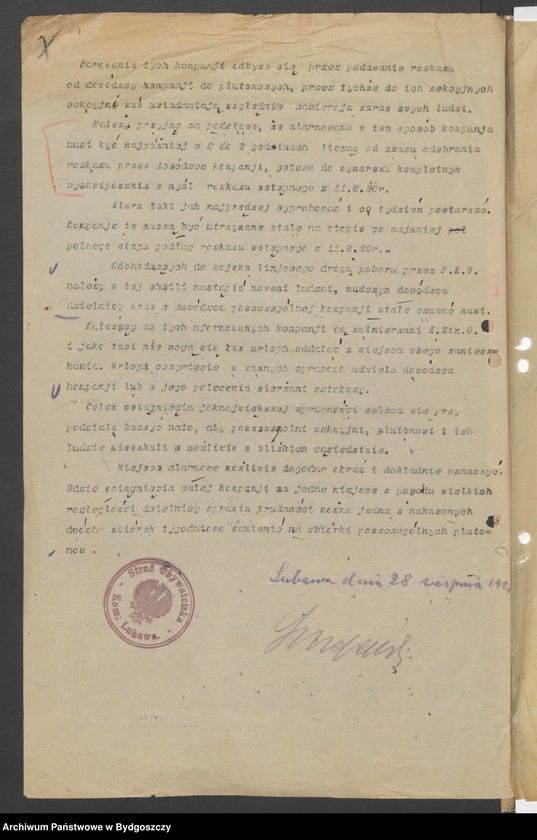 tych kompanji odbywa się przez podawanie rozkazu
od dowódcy kompanji do plutonowych, przez tychże do ich sekcyjnych
zaś zabierają zaraz swych ludzi.
Należy przyjąć za podstawę, że alarmowana w ten sposób kompanja
musi być najpóźniej w 2 do 3 godzinach licząc od czasu odebrania
rozkazu przez dowódcę kompanji, gotowa do wymarszu kompletnym
w myśl rozkazu wstępnego z 11.8.20r.
Alarm taki jak najprędzej wypróbować i co tydzień powtarzać.
Kompanje te muszą być utrzymane stale na stopie co najmniej
polnego etapu podług rozkazu wstępnego z 11.8.20r.
Odchodzących do wojska linjowego drogą poboru przez P.K.U.
należy z tej chwili zastąpić nowemi ludźmi, nad czem dowódca
dzielnicy wraz z dowódcą poszczególnej kompanji stale czuwać musi.
Należący do tych uformowanych kompanji są żołnierzami
i jako taci nie mogą się bez urlopu oddalać z miejsca swego zamiesz-
kania. Urlopu w ważnych sprawach udziela dowódca
kompanji lub z jego polecenia sierżant
Celem osiągnięcia jaknajwiększej sprawności zaleca się przy
podziale baczyć na to, aby poszczególni sekcyjni, plutonowi i ich
ludzie mieszkali w możliwie bliskiem sąsiedztwie.
Miejsca alarmowe możliwie dogodne obrać i dokładnie oznaczyć.
Gdzie ściągnięcia całej kompanji na jedno miejsce z powodu wielkich
rozległości dzielnicy sprawia trudności można jedną z nakazanych
dwóch zbiórek tygodniowo zamienić na zbiórki poszczególnych pluto-
nów .
Lubawa dnia 28 sierpnia
Straż Obywatelska
Kom. Lubawa.
Archiwum Państwowe w Bydgoszczy